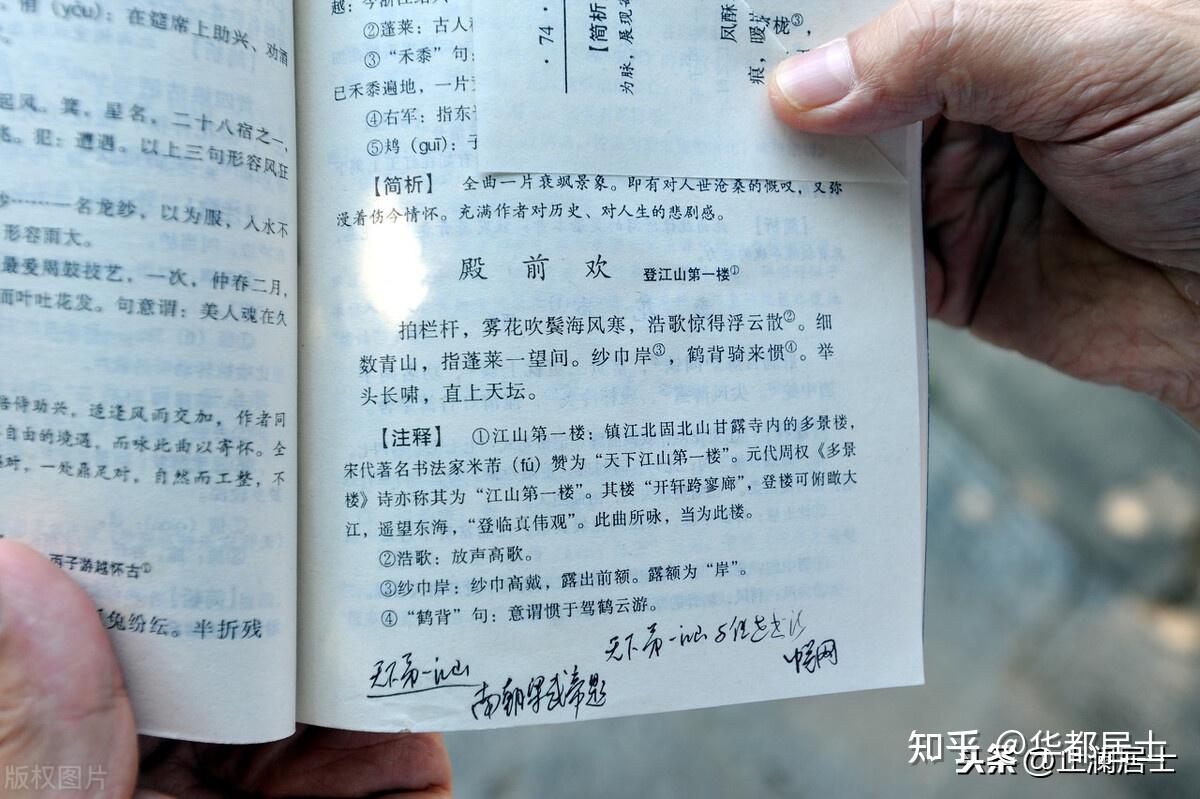 侑（yòu）：在筵席上助兴、劝酒
起风。箕，星名，二十八宿之一，
兆。犯：遭遇。以上三句形容风狂
纱……一名龙纱，以为服，入水不
形容雨大。
最爱羯鼓技艺，一次，仲春二月，
而叶吐花发。句意谓：美人魂在久
陪侍助兴，适逢风雨交加，作者同
自由的境遇，而咏此曲以寄怀。全
对，一处鼎足对，自然而工整，不
丙子游越怀古①
兔纷纭。半折残
②蓬莱：古人
③“禾黍”句：
已禾黍遍地，一片
④右军：指东
⑤鸠（guī）：子
· 74 ·
【简析】
为脉，展现
凤酥
痕，暖
栊③，
【简析】 全曲一片衰飒景象。即有对人世沧桑的慨叹，又弥
漫着伤今情怀。充满作者对历史、对人生的悲剧感。
殿前欢 登江山第一楼①
拍栏杆，雾花吹鬓海风寒，浩歌惊得浮云散②。细
数青山，指蓬莱一望间。纱巾岸③，鹤背骑来惯④。举
头长啸，直上天坛。
【注释】 ①江山第一楼：镇江北固山甘露寺内的多景楼，
宋代著名书法家米芾（fú）赞为“天下江山第一楼”。元代周权《多景
楼》诗亦称其为“江山第一楼”。其楼“开轩跨寥廊”，登楼可俯瞰大
江，遥望东海，“登临真伟观”。此曲所咏，当为此楼。
②浩歌：放声高歌。
③纱巾岸：纱巾高戴，露出前额。露额为“岸”。
④“鹤背”句：意谓惯于驾鹤云游。
天下第一江山
南朝梁武帝题
天下第一江山
知乎 @华都居士
头条 @正澜居士
版权图片